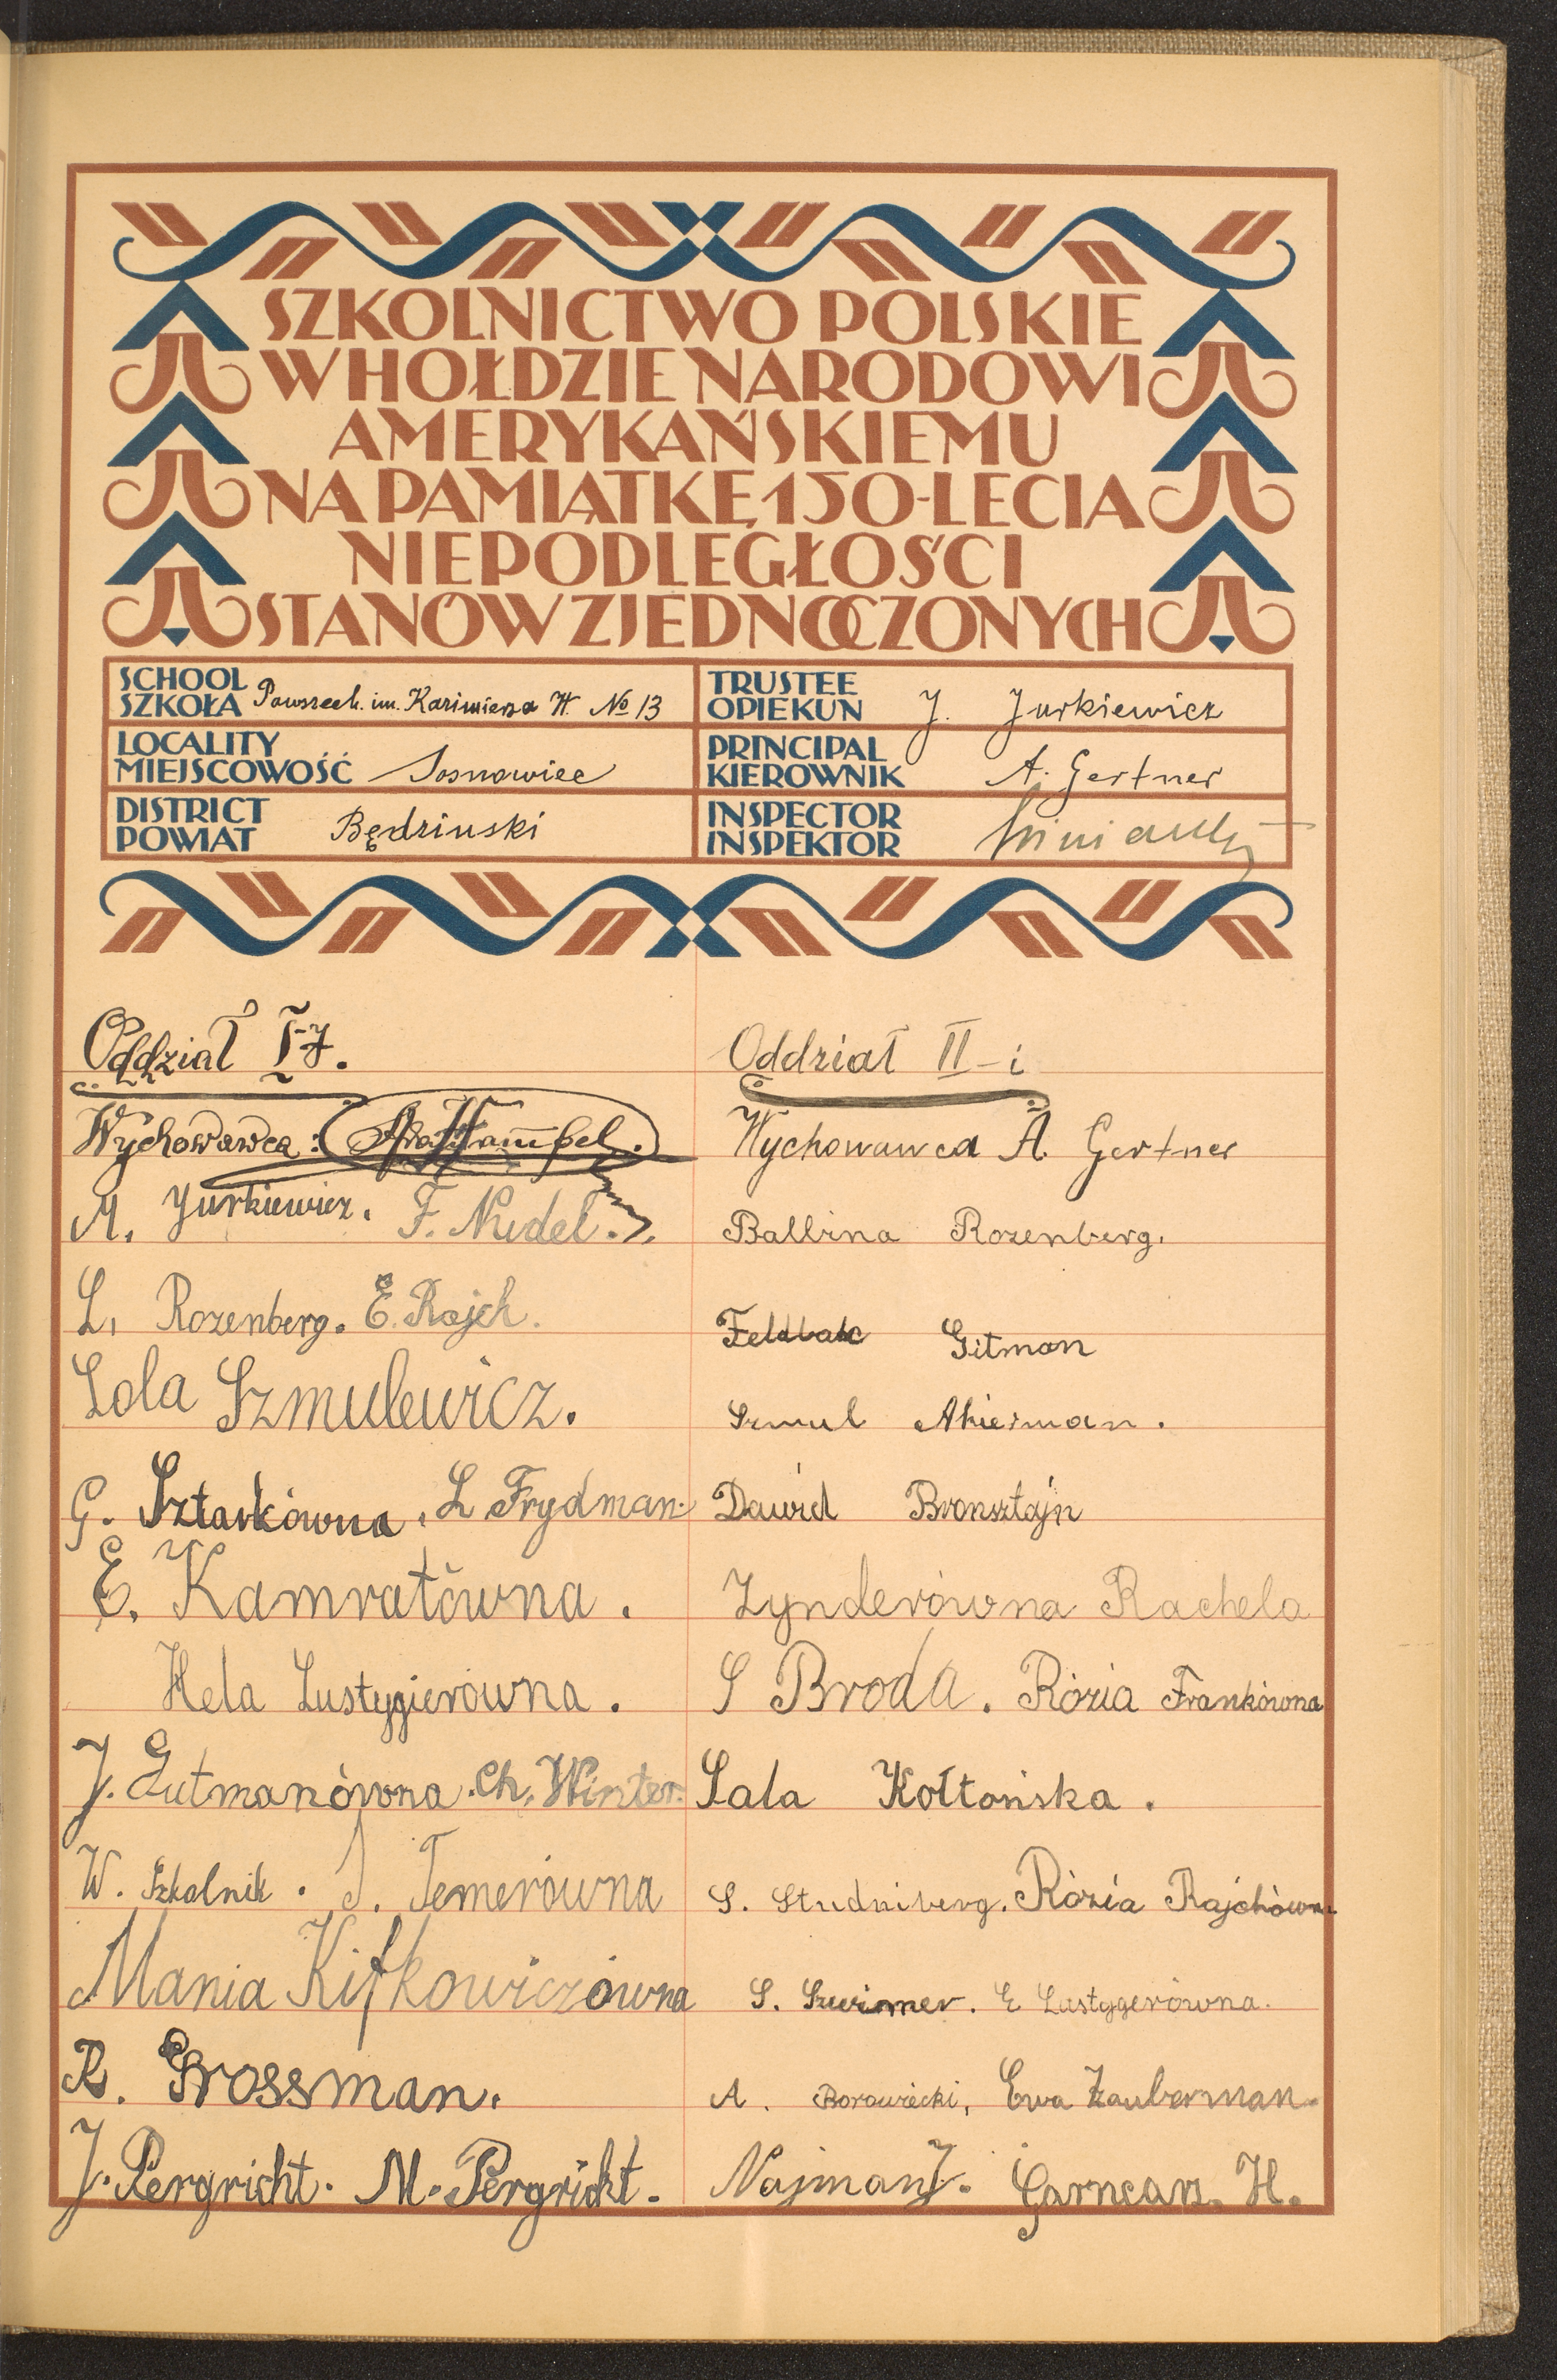 SZKOLNICTWO POLSKIE
W HOŁDZIE NARODOWI
AMERYKAŃSKIEMU
NA PAMIĄTKĘ 150-LECIA
NIEPODLEGŁOŚCI
STANÓW ZJEDNOCZONYCH
SCHOOL
SZKOŁA Powszech. im. Kazimierza W. № 13
LOCALITY
MIEJSCOWOŚĆ Sosnowiec
DISTRICT
POWIAT Będzinski
TRUSTEE
OPIEKUN J. Jurkiewicz
PRINCIPAL
KIEROWNIK A. Gertner
INSPECTOR
INSPEKTOR
Oddział I-y.
Wychowawca:
M. Jurkiewicz. F. Nudel.
L. Rozenberg. E. Rajch.
Lola Szmulewicz.
G. Sztarkówna. L Frydman.
E. Kamratówna.
Hela Lustygierówna.
J. Gutmanówna. Ch. Winter.
W. Szkolnik. J. Temerówna
Mania Kifkowiczówna
R. Grossman.
J. Pergricht. M. Pergricht.
Oddział II-i
Wychowawca A. Gertner
Balbina Rozenberg.
Feldbau Gitman
Szmul
Dawid Bronsztajn
Zynderówna Rachela
S Broda. Rózia Frankówna
Sala Kołtońska.
S. Studniberg. Rózia Rajchówna
S. Szwimer. E Lustygerówna.
A. Borowiecki, Ewa Zauberman.
Najman J. Garncarz. H.